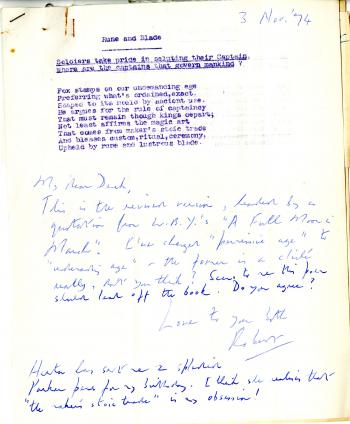 3 Nov. '74
Rune and Blade
Soldiers take pride in saluting their Captain,
Where are the captains that govern mankind ?
Fox stamps on our undemanding age
Preferring what's ordained, exact,
Shaped to its mould by ancient use.
He argues for the rule of captaincy
That must remain though kings depart;
Not least affirms the magic art
That comes from maker's stoic trade
And blesses custom, ritual, ceremony,
Upheld by rune and lustrous blade.
My dear
This is the revised version, headed by a
quotation from W.B.Y.'s "A Full Moon in
March". I've changed "permissive age" to
"undemanding age" - the former is a cliché
really, don't you think? Seems to me this poem
should lead off the book. Do you agree?
Love to you both
Robert
has sent me a splendid
Parker pen for my birthday. I think she realises that
"the maker's stoic trade" is my obsession!